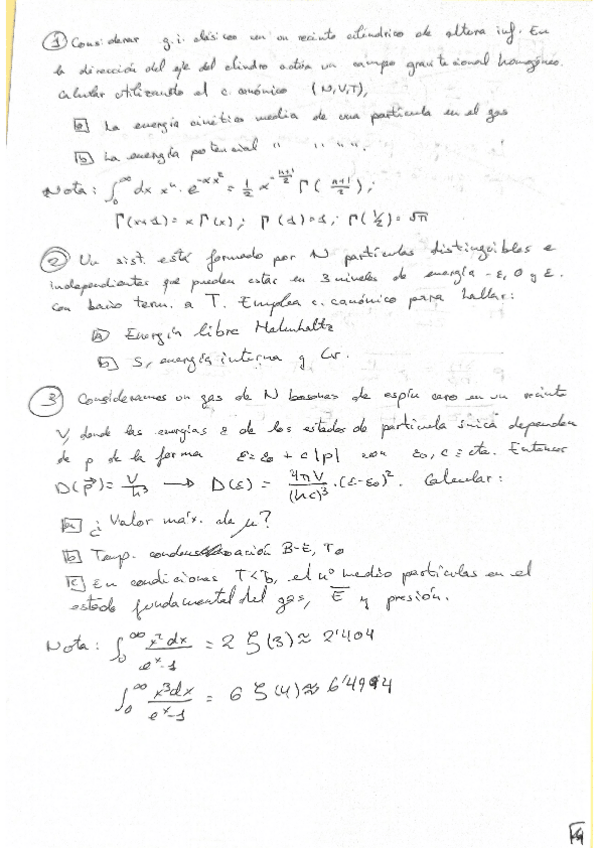 ① Considerar g.i. clásico en un recinto cilíndrico de altura inf. En
la dirección del eje del cilindro actúa un campo gravitacional homogéneo.
Calcular utilizando el c. canónico (N,V,T),
a) La energía cinética media de una partícula en el gas
b) La energía potencial " " " ".
Nota: ∫₀^∞ dx xⁿ · e^(-αx²) = 1/2 α^(-(n+1)/2) Γ((n+1)/2);
Γ(x+1) = x Γ(x); Γ(1)=1; Γ(1/2) = √π
② Un sist. está formado por N partículas distinguibles e
independientes que pueden estar en 3 niveles de energía -ε, 0 y ε.
con baño term. a T. Emplea c. canónico para hallar:
a) Energía libre Helmholtz
b) S, energía interna y Cv.
③ Consideramos un gas de N bosones de espín cero en un recinto
V, donde las energías ε de los estados de partícula única dependen
de p de la forma ε = ε₀ + c|p| con ε₀, c = cte. Entonces
D(p⃗) = V/h³ → D(ε) = 4πV/(hc)³ · (ε-ε₀)². Calcular:
a) ¿Valor máx. de μ?
b) Temp. condensación B-E, T₀
c) En condiciones T<T₀, el nº medio partículas en el
estado fundamental del gas, E̅ y presión.
Nota: ∫₀^∞ x²dx/(eˣ-1) = 2 ζ(3) ≈ 2'404
∫₀^∞ x³dx/(eˣ-1) = 6 ζ(4) ≈ 6'4994